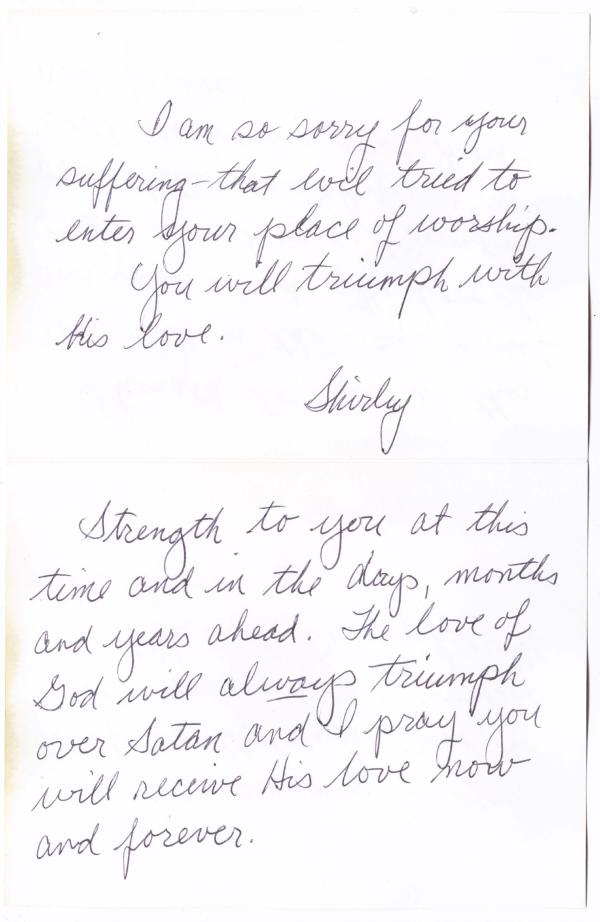 I am so sorry for your
suffering - that evil tried to
enter your place of worship.
You will triumph with
His love.
Shirley
Strength to you at this
time and in the days, months
and years ahead. The love of
God will always triumph
over Satan and I pray you
will receive His love now
and forever.